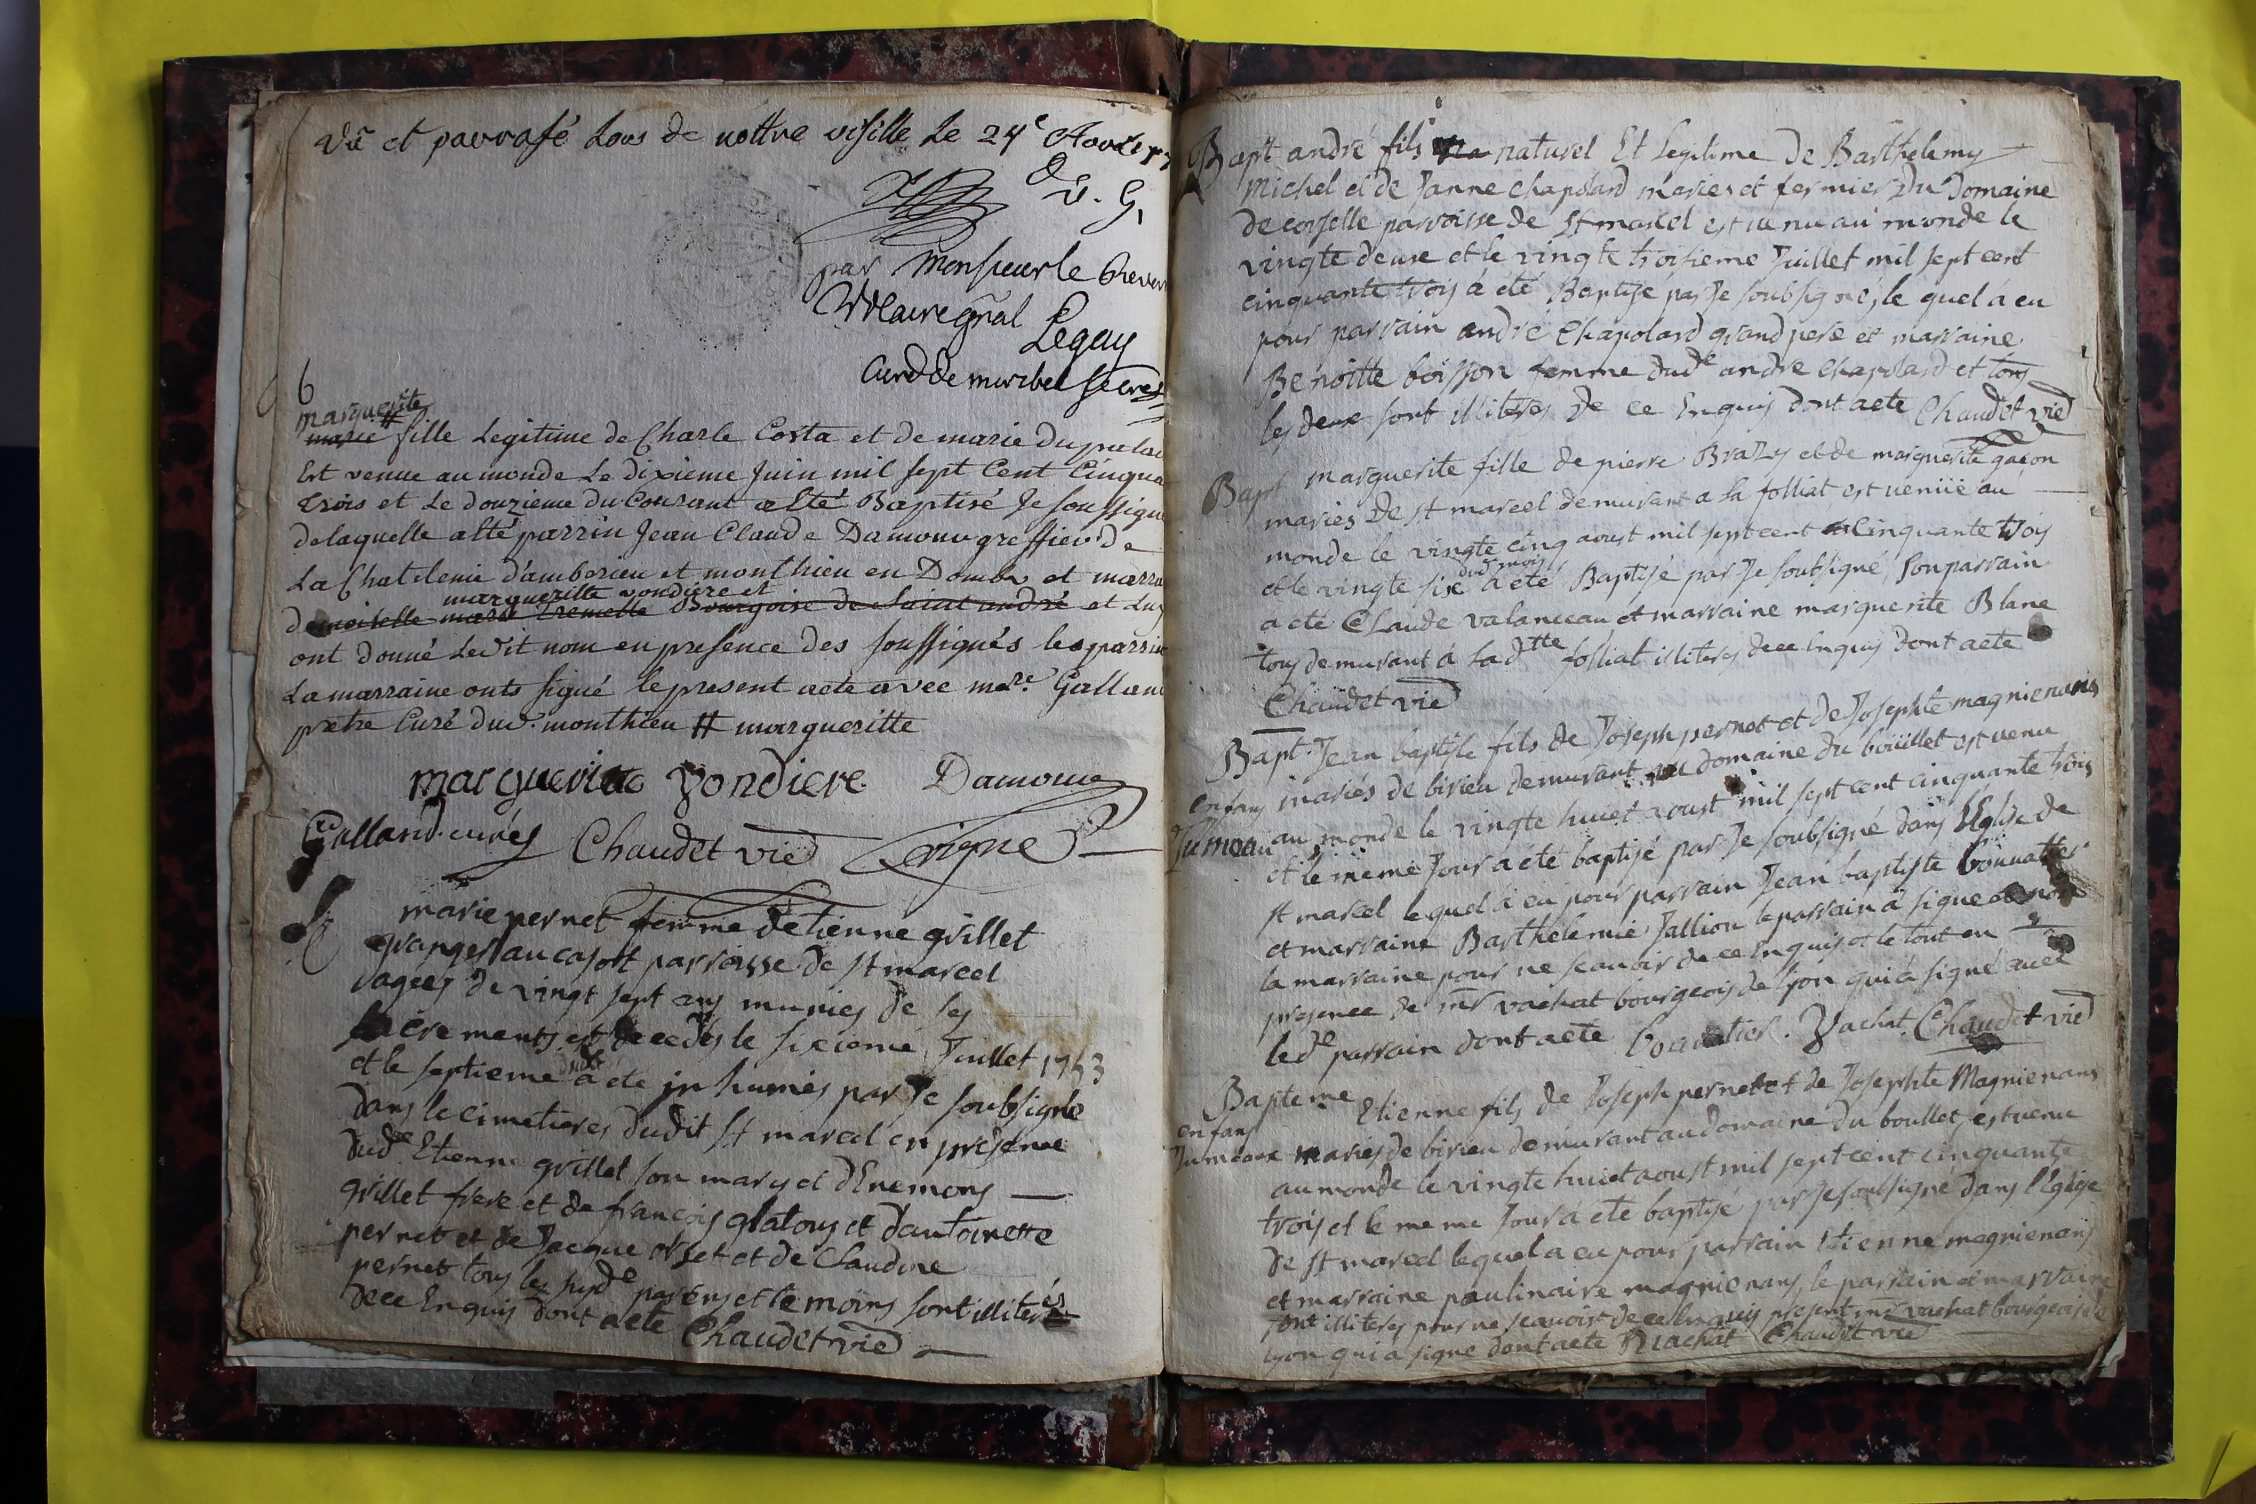 Vû et parrafé Lors de nottre visitte Le 24e
V. G.
par Monsieur le
Vicaire gñal
Legay
Curé de miribel secret
6
margueritte
marie # fille Legitime de Charle Costa et de marie
Est venue au monde Le dixieme Juin mil sept Cent Cinqua
Trois et Le douzieme du Courant a Eté Baptisé Je soussigné
de laquelle a Eté parrin Jean Claude Damour greffier de
La Chatelenie d'amberieu et monthieu en Dombe et marra
margueritte vondiere et
demoiselle marie Bourgoise de Saint andré et Luy
ont donné Ledit nom en presence des soussignés les parrin
La marraine onts signé le present acte avec mare. Galland
pretre Curé dud. monthieu # margueritte
margueritte vondiere Damour
Galland. curés Chaudet vic
marie pernet femme detienne grillet
granger au casott parroisse de st marcel
agees de vingt sept ans munies de ses
sacrements est decedes le sixieme Juillet 1753
dudt
et le septieme a eté inhumés par Je soubsigné
dans le cimetieres dudit st marcel en présence
dude Etienne grillet son mary et dEnemons
grillet frere et de francois glatous et dantoinette
pernet et de Jacque orset et de Claudine
pernet tous les susde parens et temoins sont illiterés
de ce Enquis dont acte Chaudet vic
Bapt andré fils na naturel Et Legitime de Barthelemy
Michel et de Janne Chapolard maries et fermier du Domaine
de corselle parroisse de St marcel est venu au monde le
vingte deuxe et le vingte troisieme Juillet mil sept cent
cinquante trois á été Baptise par Je soubsigné, le quel á eu
pour parrain andré Chapolard grand pere et marraine
Benoitte boisson femme dude andré Chapolard et tous
les deux sont illiteres de ce Enquis dont acte Chaudet vic
Bapt marguerite fille de pierre Brazy et de marguerite gacon
maries de st marcel demurant a la folliat est venüe au
monde le vingte cinq aoust mil sept cent cinquante trois
dud mois
et le vingte sixe a eté Baptisé par Je soubsigné, son parrain
a eté Claude valancau et marraine marguerite Blanc
tous demurant á La dtte folliat illiteres de ce Enquis dont acte
Chaudet vic
Bapt. Jean baptiste fils de Joseph pernet et de Josephte magnienans
mariés de birieu demurant au domaine du boüillet est venu
enfans
Jumeau au monde le vingte huiet aoust mil sept cent cinquante trois
et le meme Jour a eté baptisé par Je soubsigné dans l'Eglise de
st marcel lequel á eu pour parrain Jean baptiste bouvatier
et marraine Barthelemie Jallion le parrain á signé et non
la marraine pour ne scauoir de ce Enquis et le tout en
presence de mr vachat bourgeois de lyon qui á signé avec
lede parrain dont acte bouvatier. Vachat. Chaudet vic
Bapteme Etienne fils de Joseph pernet et de Josephte Magnienans
enfans
Jumeaux maries de birieu demurant au domaine du boullet, est venu
au monde le vingte huiet aoust mil sept cent cinquante
trois et le meme Jour a eté baptisé par Je soubsigné dans l'Eglise
de st marcel lequel a eu pour parrain Etienne magnienans
et marraine paulinaire magnienans, le parrain et marraine
sont illiteres pour ne scauoir de ce Enquis present mr vachat bourgeois de
lyon qui a signe dont acte Vachat Chaudet vic